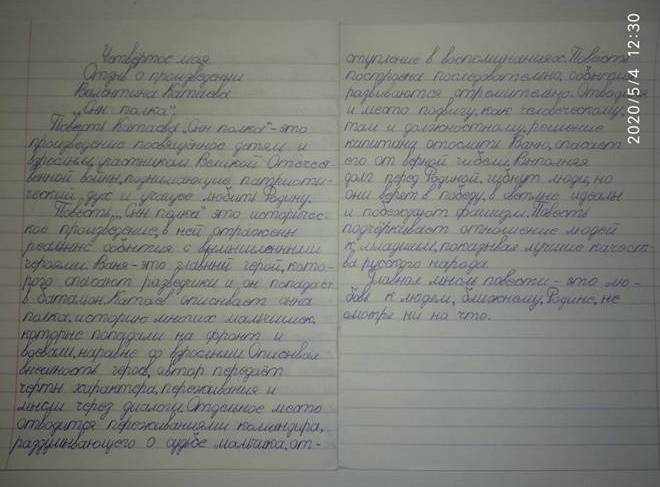 Четвёртое мая
Отзыв о произведении
Валентина Катаева
„Сын полка".
Повесть Катаева „Сын полка" - это
произведение посвящённое детям и
взрослым, участникам Великой Отечест-
венной войны, поднимающие патриоти-
ческий дух и учащее любить Родину.
Повесть „Сын полка" это историчес-
кое произведение, в ней отражены
реальные события с вымышленными
героями. Ваня - это главный герой, кото-
рого спасают разведчики и он попадает
в батальон. Катаев описывает сына
полка, историю многих мальчишек,
которые попадали на фронт и
воевали, наравне со взрослыми. Описывая
внешность героя, автор передаёт
черты характера, переживания и
мысли через диалоги. Отдельное место
отводится переживаниями командира,
раздумывающего о судьбе мальчика, от-
ступление в воспоминаниях. Повесть
построена последовательно, события
развиваются стремительно. Отводится
и место подвигу, как человеческому,
там и должностному, решение
капитана отослать Ваню, спасает
его от верной гибели. Выполняя
долг перед Родиной, гибнут люди, но
они верят в победу, в светлые идеалы
и побеждают фашизм. Повесть
подчёркивает отношение людей
к младшим, показывая лучшие качест-
ва русского народа.
Главная мысль повести - это лю-
бовь к людям, ближнему, Родине, не
смотря ни на что.
2020/5/4 12:30